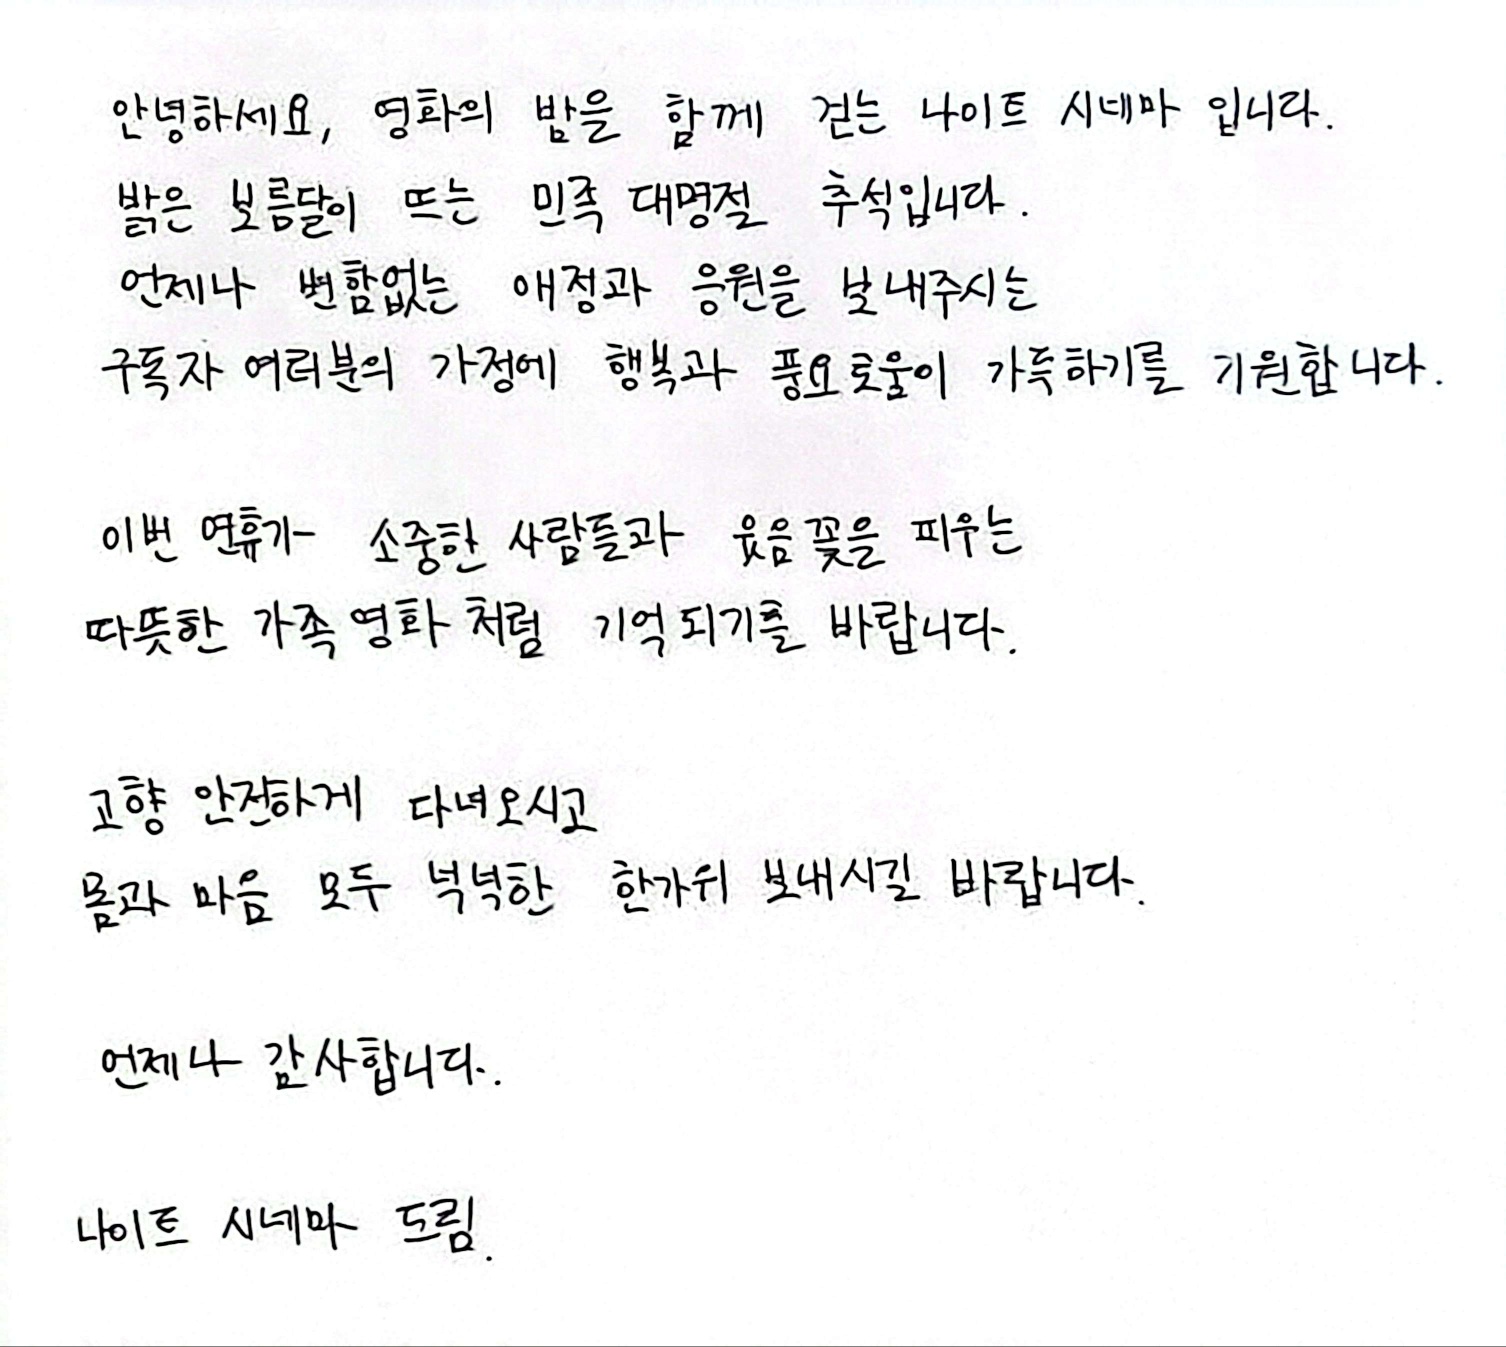 안녕하세요, 영화의 밤을 함께 걷는 나이트 시네마 입니다.
밝은 보름달이 뜨는 민족 대명절 추석입니다.
언제나 변함없는 애정과 응원을 보내주시는
구독자 여러분의 가정에 행복과 풍요로움이 가득하기를 기원합니다.
이번 연휴가 소중한 사람들과 웃음꽃을 피우는
따뜻한 가족영화처럼 기억되기를 바랍니다.
고향 안전하게 다녀오시고
몸과 마음 모두 넉넉한 한가위 보내시길 바랍니다.
언제나 감사합니다.
나이트 시네마 드림.